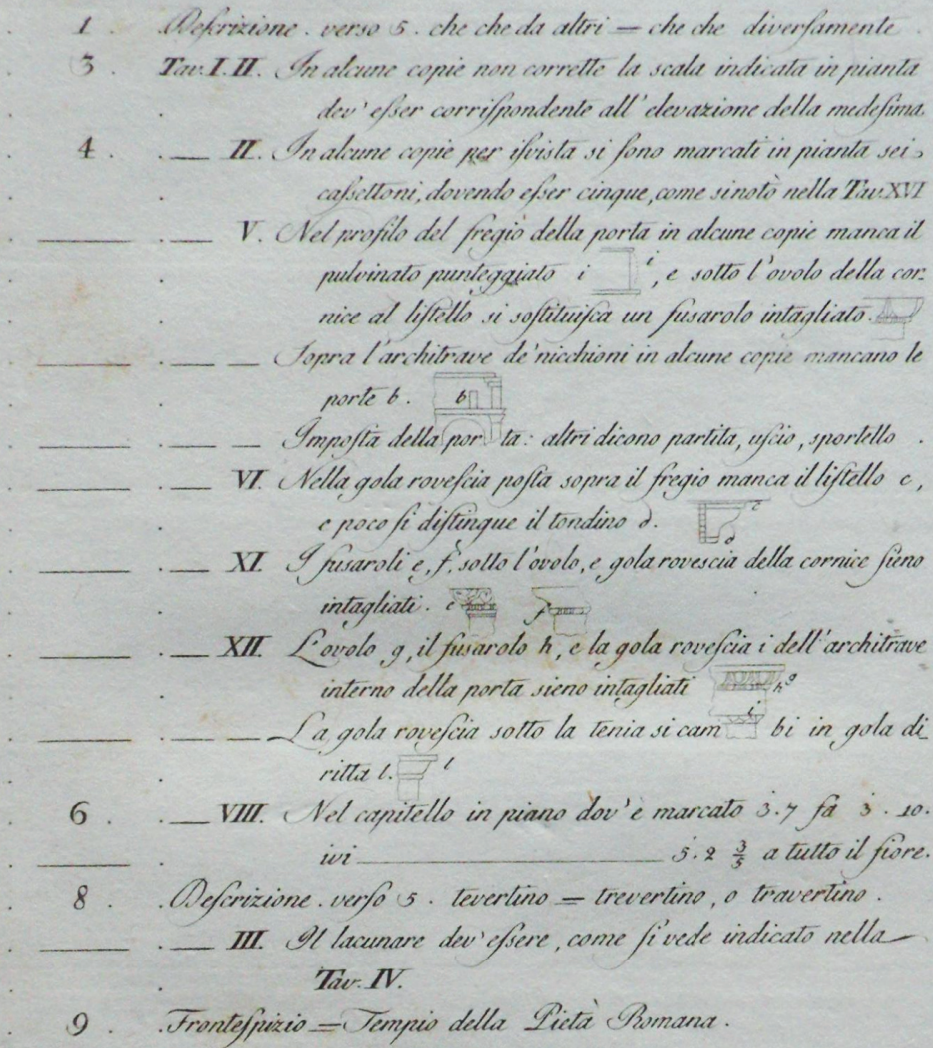 1 . Deſcrizione . verso 5 . che che da altri = che che diverſamente .
3 . Tav. I. II. In alcune copie non corrette la scala indicata in pianta
dev' eſser corriſpondente all' elevazione della medeſima
4 . . __ II. In alcune copie per iſvista si ſono marcati in pianta sei
caſsettoni, dovendo eſser cinque, come si notò nella Tav. XVI
____ . __ V. Nel profilo del fregio della porta in alcune copie manca il
pulvinato punteggiato i i , e sotto l'ovolo della cor:
nice al liſtello si soſtituiſca un fusarolo intagliato.
____ . __ __ Sopra l'architrave de' nicchioni in alcune copie mancano le
porte b . b
____ . __ __ Impoſta della por ta : altri dicono partita, uſcio, sportello .
____ . __ VI. Nella gola roveſcia poſta sopra il fregio manca il liſtello c ,
e poco ſi diſtingue il tondino d . c d
____ . __ XI I fusaroli e, f, sotto l'ovolo, e gola rovescia della cornice ſieno
intagliati . e f
____ . __ XII. L'ovolo g, il fusarolo h, e la gola roveſcia i dell' architrave
interno della porta sieno intagliati h g
i
____ . __ __ La gola roveſcia sotto la tenia si cam bi in gola di
ritta l. l
6 . . __ VIII. Nel capitello in piano dov' è marcato 3 . 7 fa 3 . 10 .
____ . ivi ____ 5 . 2 3/5 a tutto il fiore .
8 . . Deſcrizione . verſo 5 . tevertino = trevertino , o travertino .
____ . __ III. Il lacunare dev' eſsere , come ſi vede indicato nella
Tav. IV.
9 . . Fronteſpizio = Tempio della Pietà Romana .